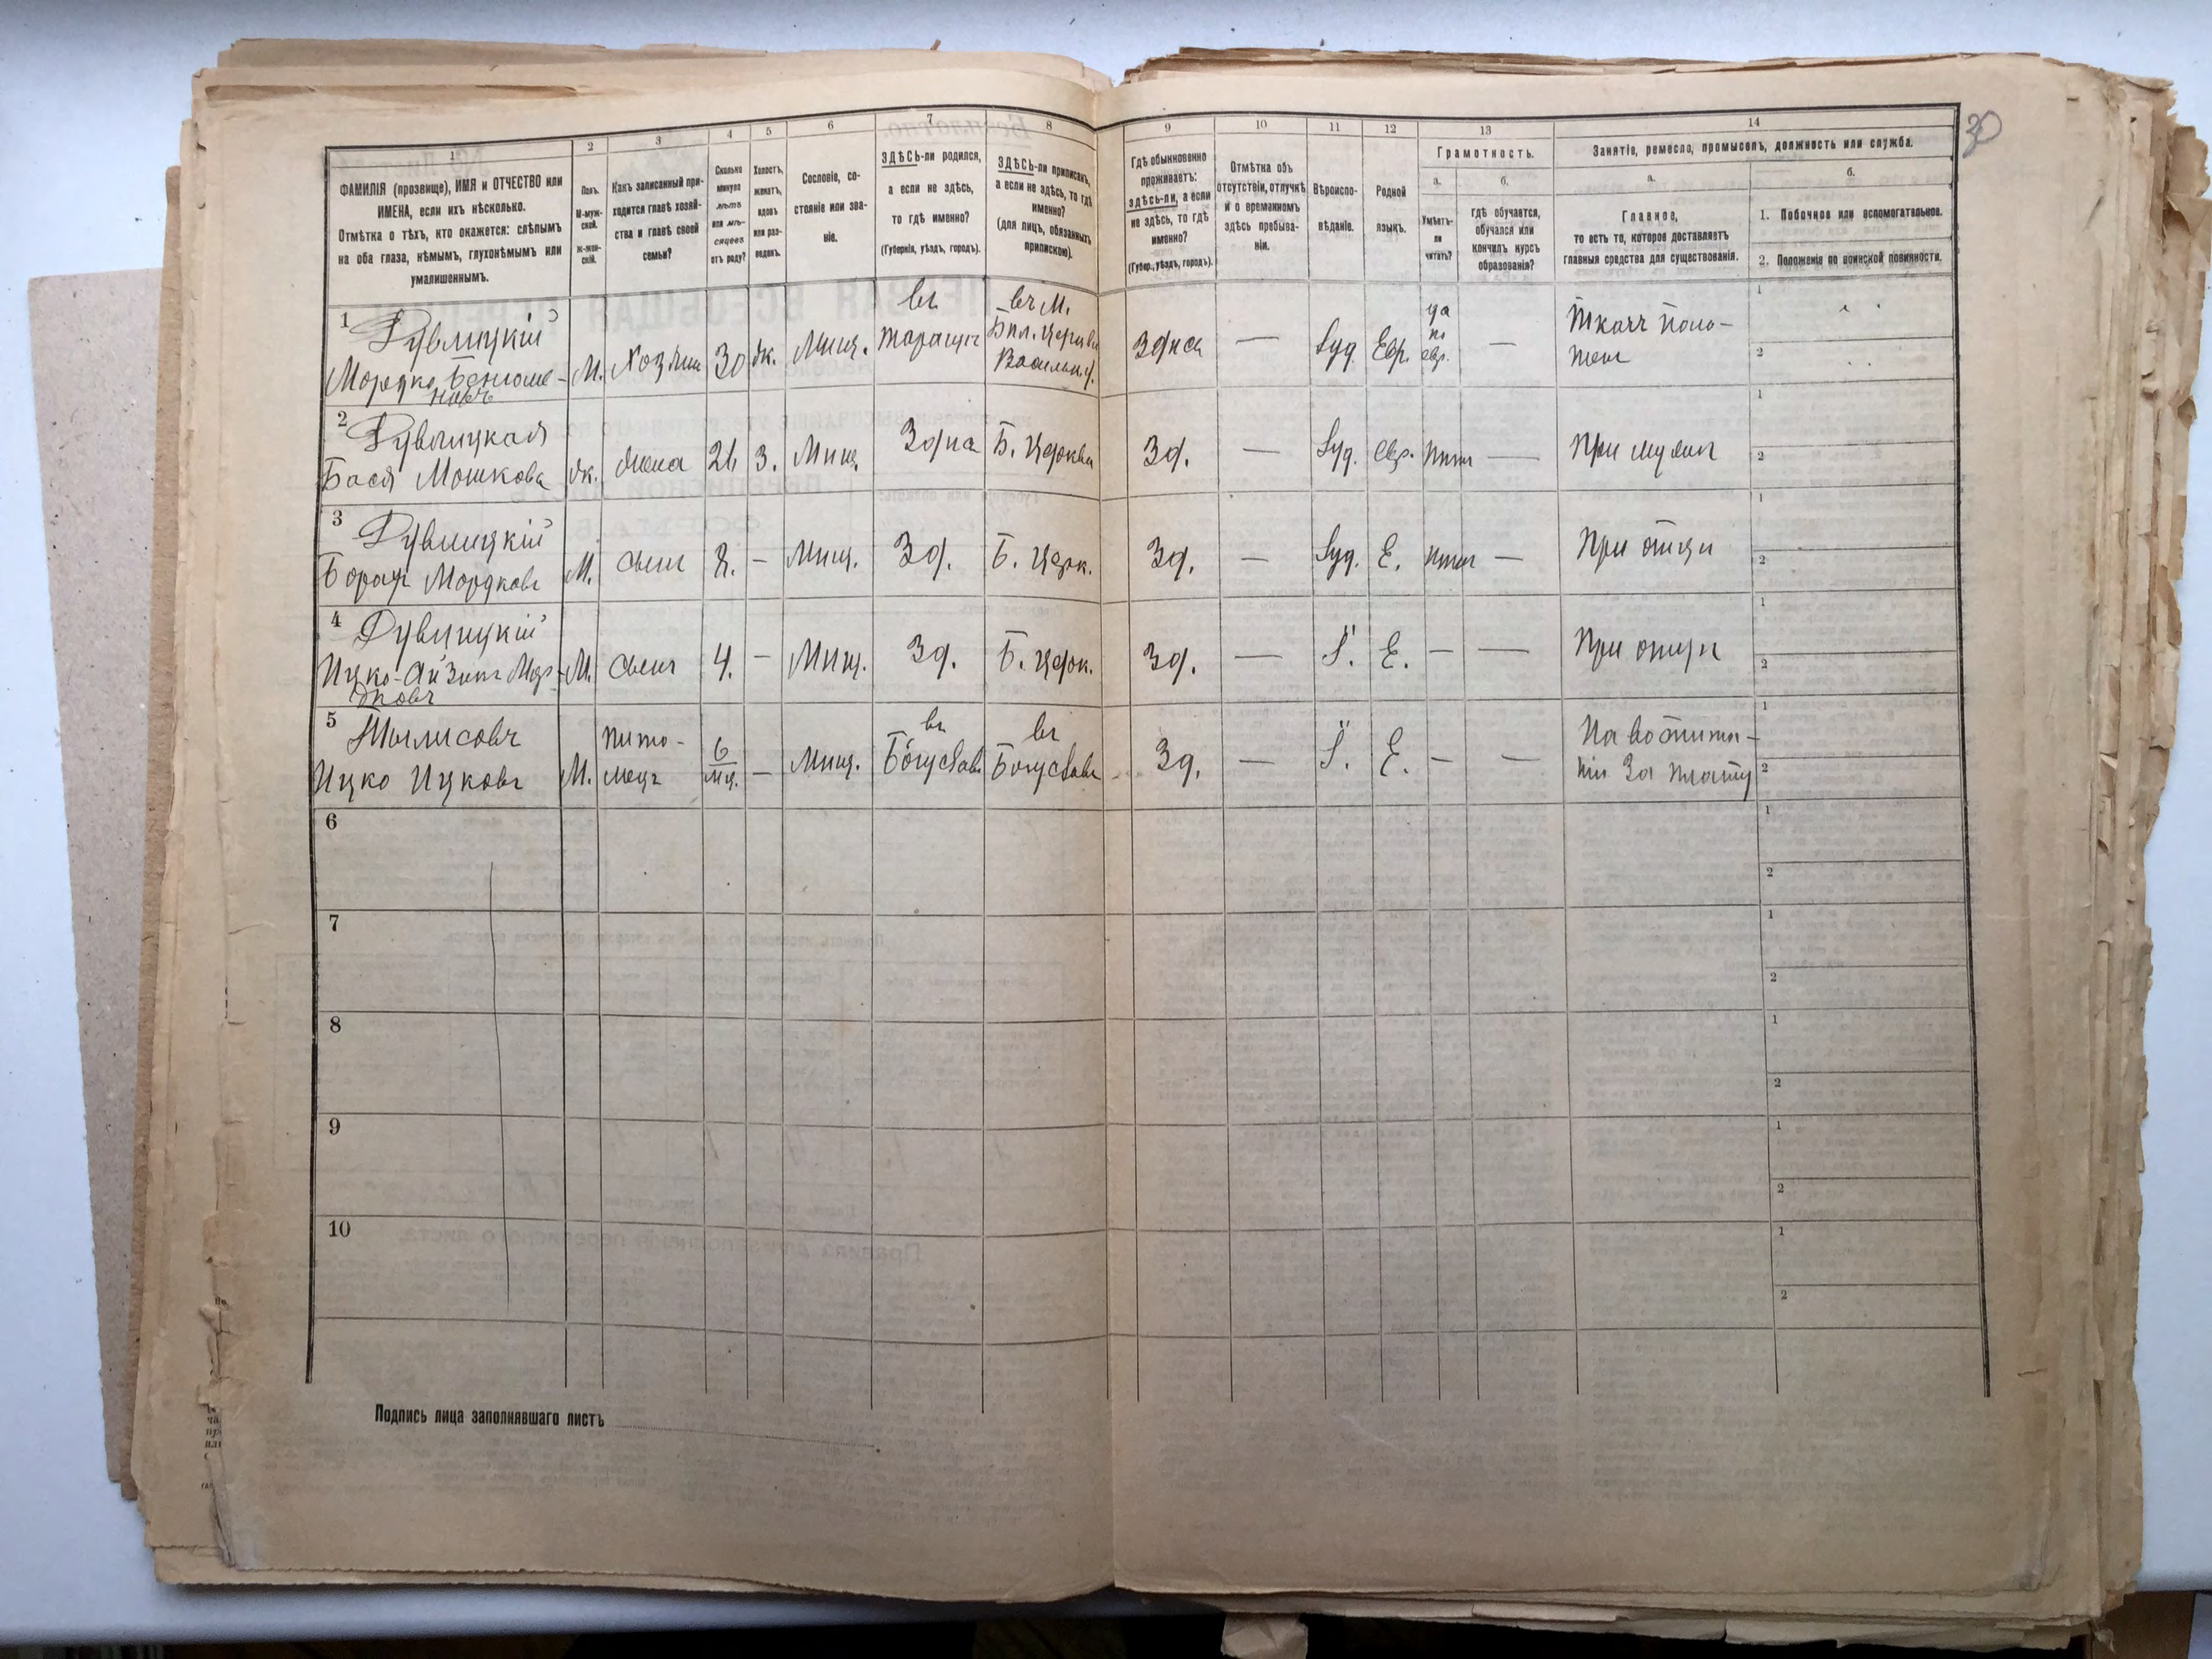 30
1 2 3 4 5 6 7 8 9 10 11 12 13 14
ФАМИЛІЯ (прозвище), ИМЯ и ОТЧЕСТВО или
ИМЕНА, если ихъ нѣсколько.
Отмѣтка о тѣхъ, кто окажется: слѣпымъ
на оба глаза, нѣмымъ, глухонѣмымъ или
умалишеннымъ.
Полъ.
М-муж-
ской.
Ж-жен-
скій.
Какъ записанный при-
ходится главѣ хозяй-
ства и главѣ своей
семьи?
Сколько
минуло
лѣтъ
или мѣ-
сяцевъ
отъ роду?
Холостъ,
женатъ,
вдовъ
или раз-
веденъ.
Сословіе, со-
стояніе или зва-
ніе.
ЗДѢСЬ-ли родился,
а если не здѣсь,
то гдѣ именно?
(Губернія, уѣздъ, городъ).
ЗДѢСЬ-ли приписанъ,
а если не здѣсь, то гдѣ
именно?
(для лицъ, обязанныхъ
припискою).
Гдѣ обыкновенно
проживаетъ:
здѣсь-ли, а если
не здѣсь, то гдѣ
именно?
(Губер., уѣздъ, городъ).
Отмѣтка объ
отсутствіи, отлучкѣ
и о временномъ
здѣсь пребыва-
ніи.
Вѣроиспо-
вѣданіе.
Родной
языкъ.
Грамотность.
а.
Умѣетъ-
ли
читать?
б.
гдѣ обучается,
обучался или
кончилъ курсъ
образованія?
Занятіе, ремесло, промыселъ, должность или служба.
а.
Главное,
то есть то, которое доставляетъ
главныя средства для существованія.
б.
1. Побочное или вспомогательное.
2. Положеніе по воинской повинности.
1 Рувлицкій
Мордко Беньоми-
новъ
М. Хозяин 30 ж. Мищ. въ Таращи въ М. Бѣл. Церкви Василь. у. здися — Іуд. Евр. да по евр. — Ткачъ поло-
тен
2 Рувлицкая
Бася Мошкова ж. жена 26 з. Мищ. Здися Б. Церкви Зд. — Іуд. евр. нит — При мужи
3 Рувлицкій
Борах Мордковъ М. сын 8. — Мищ. Зд. Б. Церк. Зд. — Іуд. Е. нит — При отци
4 Рувлицкій
Ицко-Айзикъ Мор-
дковъ
М. сын 4. — Мищ. Зд. Б. Церк. Зд. — І. Е. — — При отци
5
Ицко Ицковъ М. пито-
мецъ 6 мц. — Мищ. въ Богуслави въ Богуслави Зд. — І. Е. — — На воспита-
ніи за плату
6
7
8
9
10
Подпись лица заполнявшаго листъ